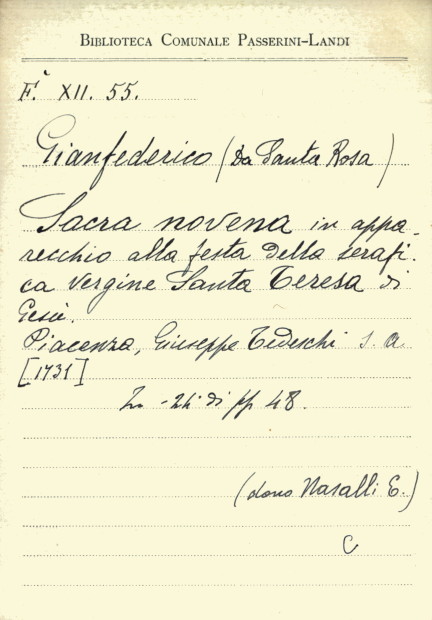 BIBLIOTECA COMUNALE PASSERINI-LANDI
F.` XII. 55.
Gianfederico (Da Santa Rosa)
Sacra novena in appa-
recchio alla festa della serafi-
ca Vergine Santa Teresa di
Gesù.
Piacenza, Giuseppe Tedeschi s. a.
[1731]
In -24° di pp 48.
(dono Nasalli E.)
C